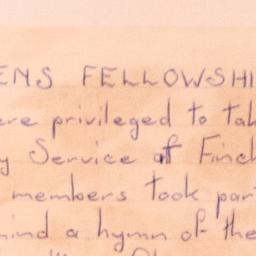 ENS FELLOWSHI
ere privileged to tak
y Service at Finch
members took par
mind a hymn of the